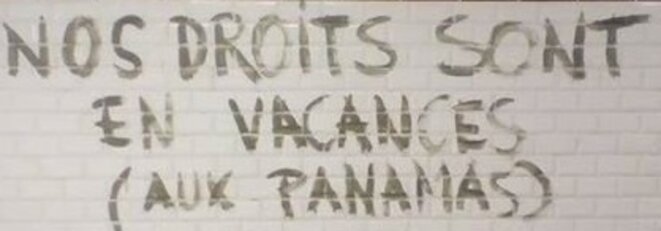 NOS DROITS SONT
EN VACANCES
(AUX PANAMAS)